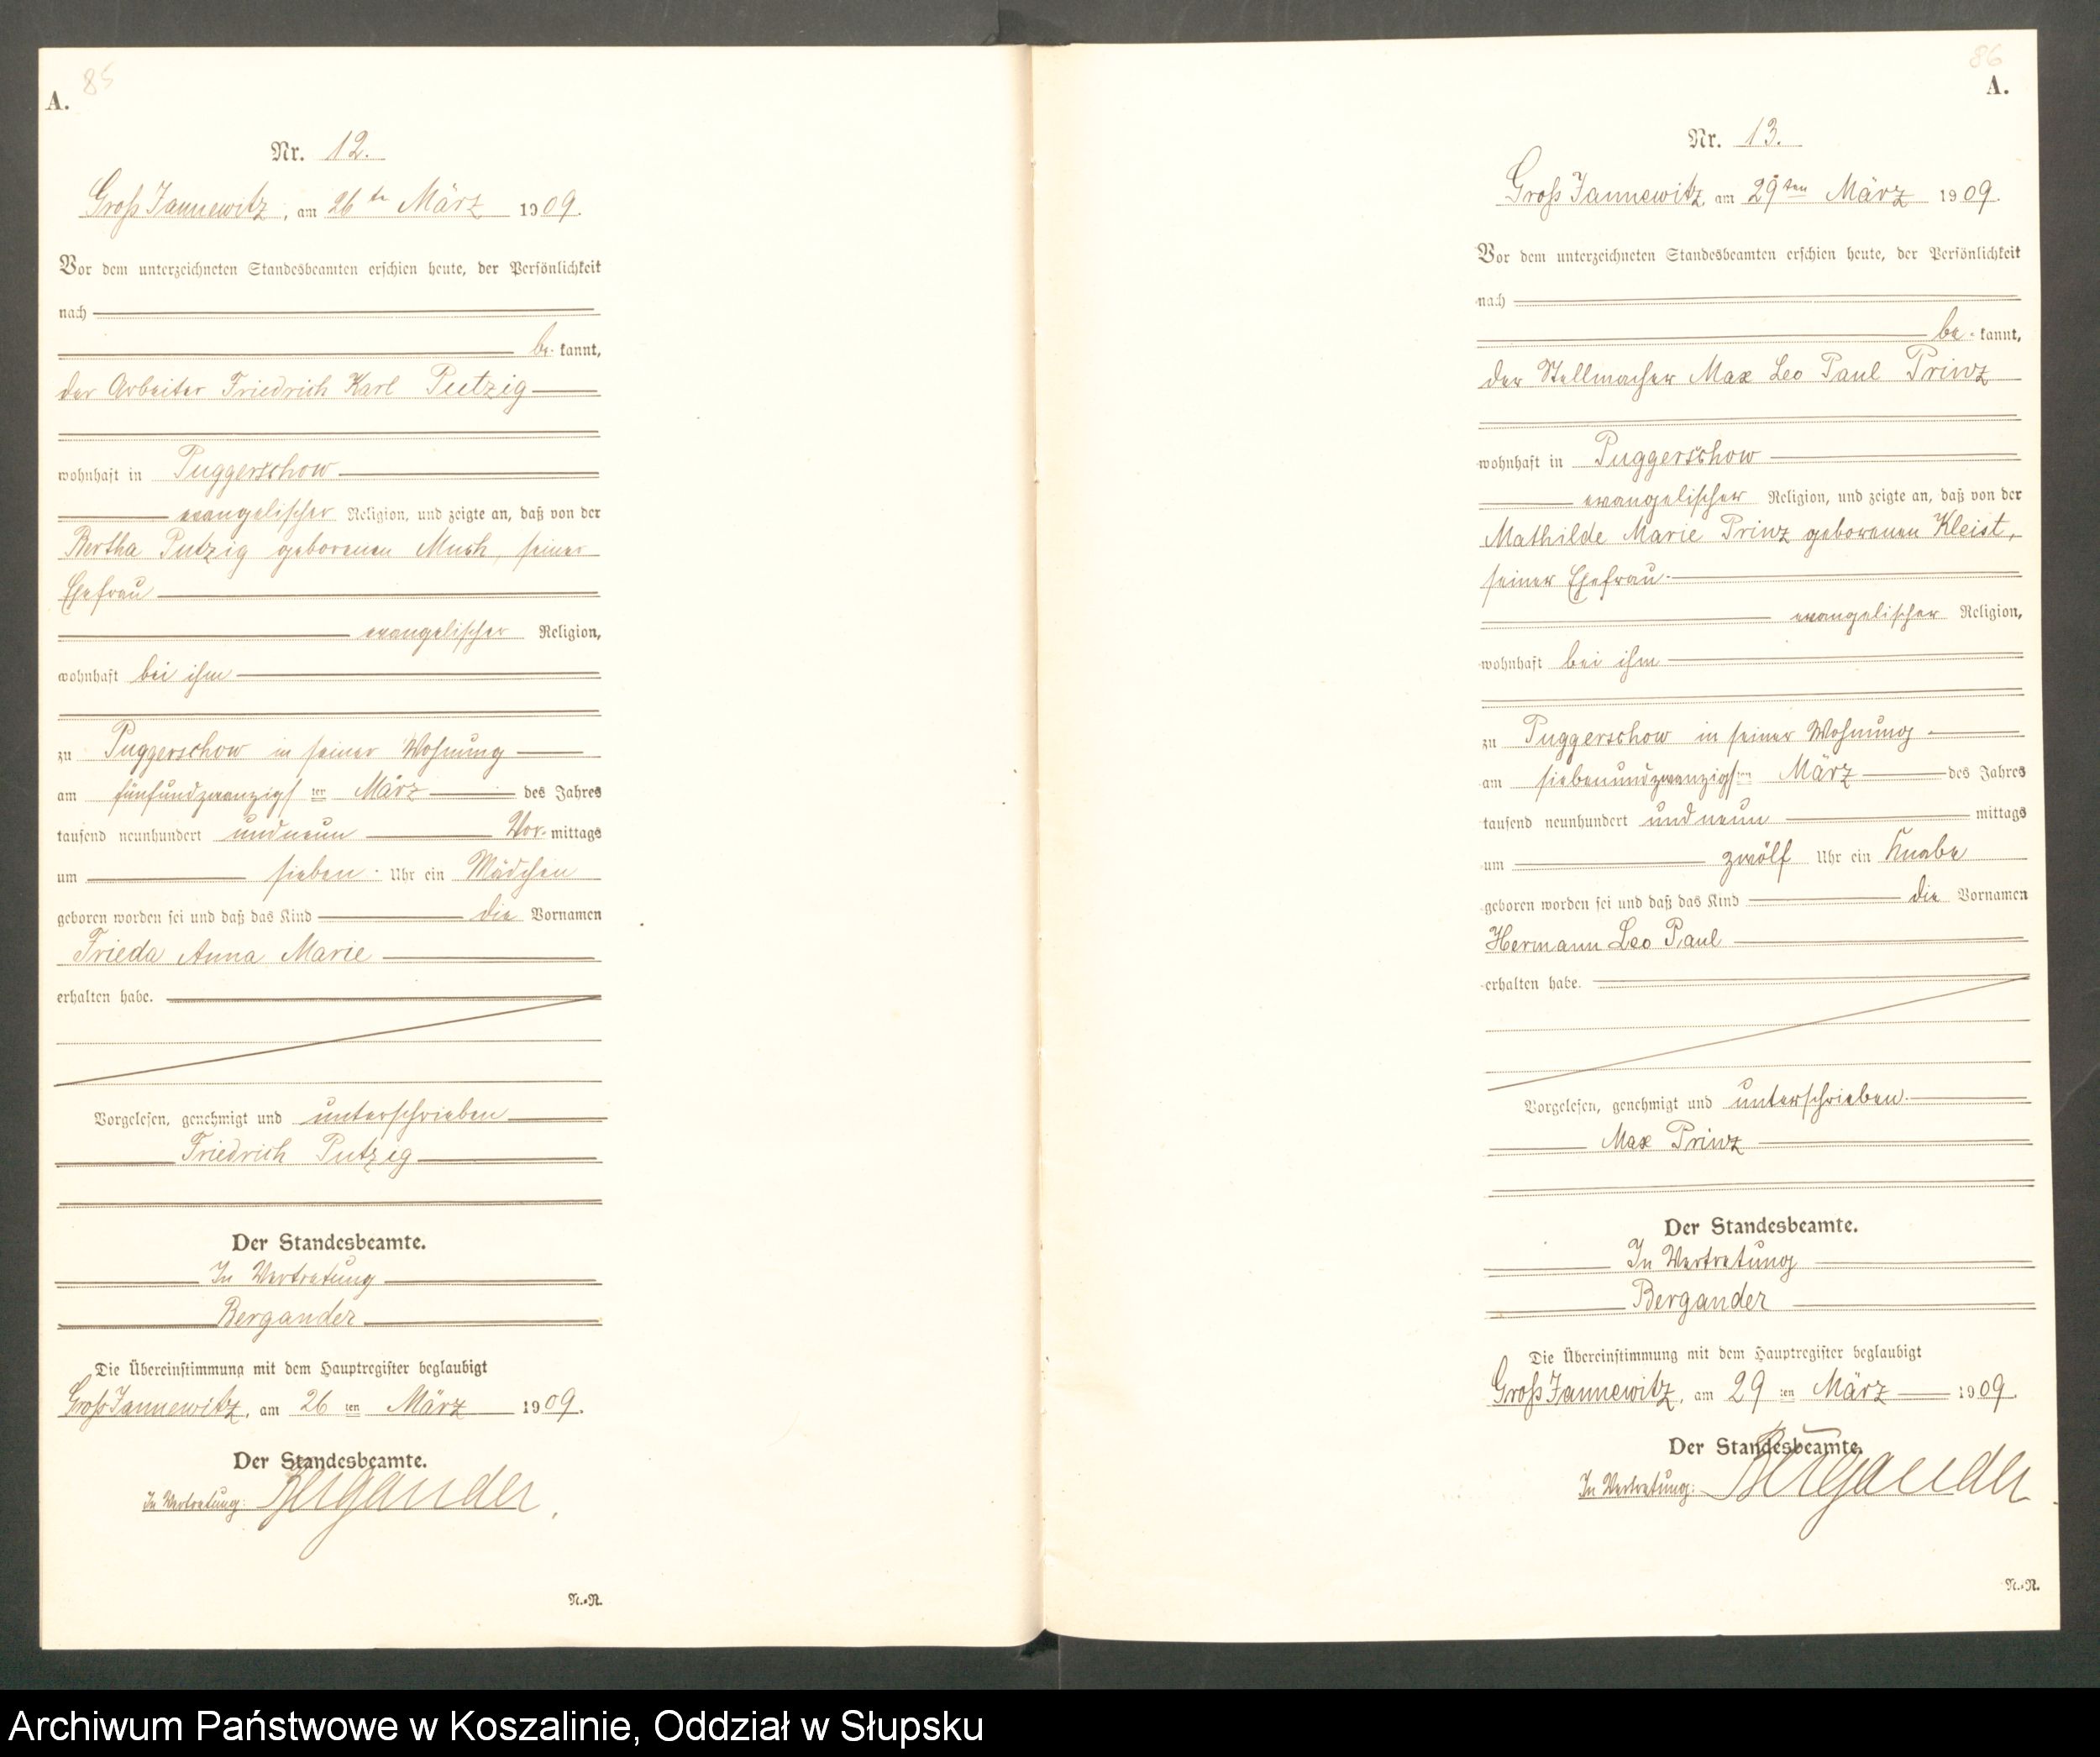 85
A.
Nr. 12.
Groß Jannewitz, am 26 ten März 1909.
Vor dem unterzeichneten Standesbeamten erschien heute, der Persönlichkeit
nach
be- kannt,
der Arbeiter Friedrich Karl Putzig
wohnhaft in Puggerschow
evangelischer Religion, und zeigte an, daß von der
Bertha Putzig geborenen Much, seiner
Ehefrau
evangelischer Religion,
wohnhaft bei ihm
zu Puggerschow in seiner Wohnung
am fünfundzwanzigsten März des Jahres
tausend neunhundert und neun Vor- mittags
um sieben Uhr ein Mädchen
geboren worden sei und daß das Kind die Vornamen
Frieda Anna Marie
erhalten habe.
Vorgelesen, genehmigt und unterschrieben
Friedrich Putzig
Der Standesbeamte.
In Vertretung
Bergander
Die Übereinstimmung mit dem Hauptregister beglaubigt
Groß Jannewitz, am 26 ten März 1909.
Der Standesbeamte.
In Vertretung: Bergander
N.-N.
86
A.
Nr. 13.
Groß Jannewitz, am 29 ten März 1909.
Vor dem unterzeichneten Standesbeamten erschien heute, der Persönlichkeit
nach
be- kannt,
der Stellmacher Max Leo Paul Prinz
wohnhaft in Puggerschow
evangelischer Religion, und zeigte an, daß von der
Mathilde Marie Prinz geborenen Kleist,
seiner Ehefrau
evangelischer Religion,
wohnhaft bei ihm
zu Puggerschow in seiner Wohnung
am siebenundzwanzigsten März des Jahres
tausend neunhundert und neun mittags
um zwölf Uhr ein Knabe
geboren worden sei und daß das Kind die Vornamen
Hermann Leo Paul
erhalten habe.
Vorgelesen, genehmigt und unterschrieben.
Max Prinz
Der Standesbeamte.
In Vertretung
Bergander
Die Übereinstimmung mit dem Hauptregister beglaubigt
Groß Jannewitz, am 29 ten März 1909.
Der Standesbeamte.
In Vertretung: Bergander
N.-N.
Archiwum Państwowe w Koszalinie, Oddział w Słupsku